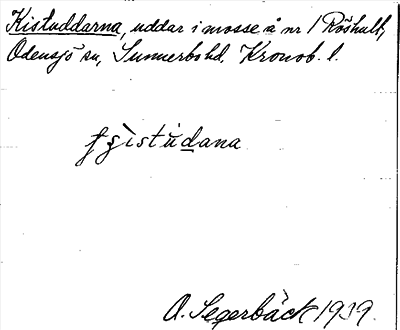 Kistuddarna, uddar i mosse å nr 1 Röshult,
Odensjö sn, Sunnerbo hd, Kronob. l.
A. Segerbäck 1939.